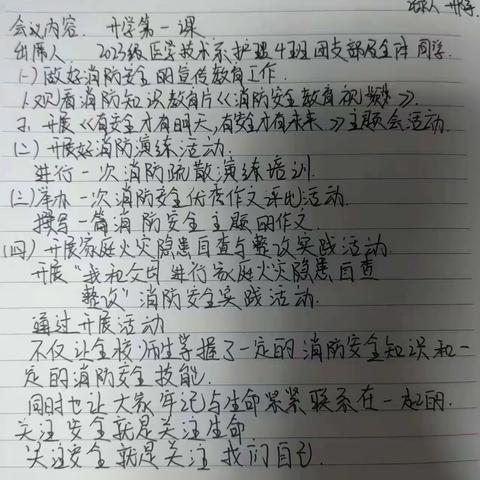 会议内容. 开学第一课
出席人 2023级医学技术系护理4班团支部及全体同学.
(一)做好消防安全的宣传教育工作.
1.观看消防知识教育片《消防安全教育视频》.
2.开展《有安全才有明天,有安全才有未来》主题会活动.
(二)开展好消防演练活动.
进行一次消防疏散演练培训.
(三)举办一次消防安全优秀作文评比活动.
撰写一篇消防安全主题的作文.
(四)开展家庭火灾隐患自查与整改实践活动.
开展“我和父母进行家庭火灾隐患自查
整改”消防安全实践活动.
通过开展活动
不仅让全校师生掌握了一定的消防安全知识和一
定的消防安全技能.
同时也让大家牢记与生命紧紧联系在一起的.
关注安全就是关注生命.
关注安全就是关注我们自己.